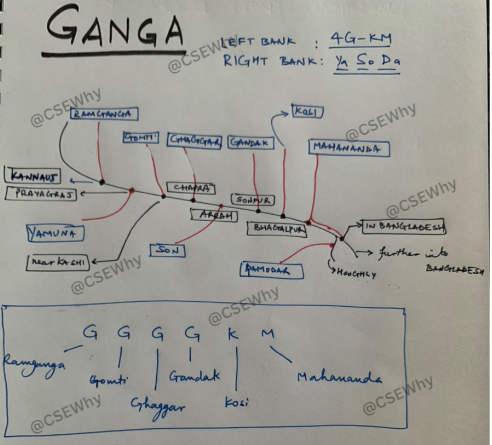 GANGA
LEFT BANK : 4G-KM
RIGHT BANK: Ya So Da
@CSEWhy
@CSEWhy
@CSEWhy
RAMGANGA
KOSI
GOMTI
GHAGGAR
GANDAK
MAHANANDA
@CSEWhy
KANNAUJ
PRAYAGRAJ
CHAPRA
SONPUR
@CSEWhy
ARRAH
BHAGALPUR
IN BANGLADESH
YAMUNA
SON
near KASHI
DAMODAR
HOOGHLY
further into
BANGLADESH
@CSEWhy
@CSEWhy
@CSEWhy
G G G G K M
Ramganga
Gomti
Gandak
Mahananda
Ghaggar
Kosi
@CSEWhy
@CSEWhy